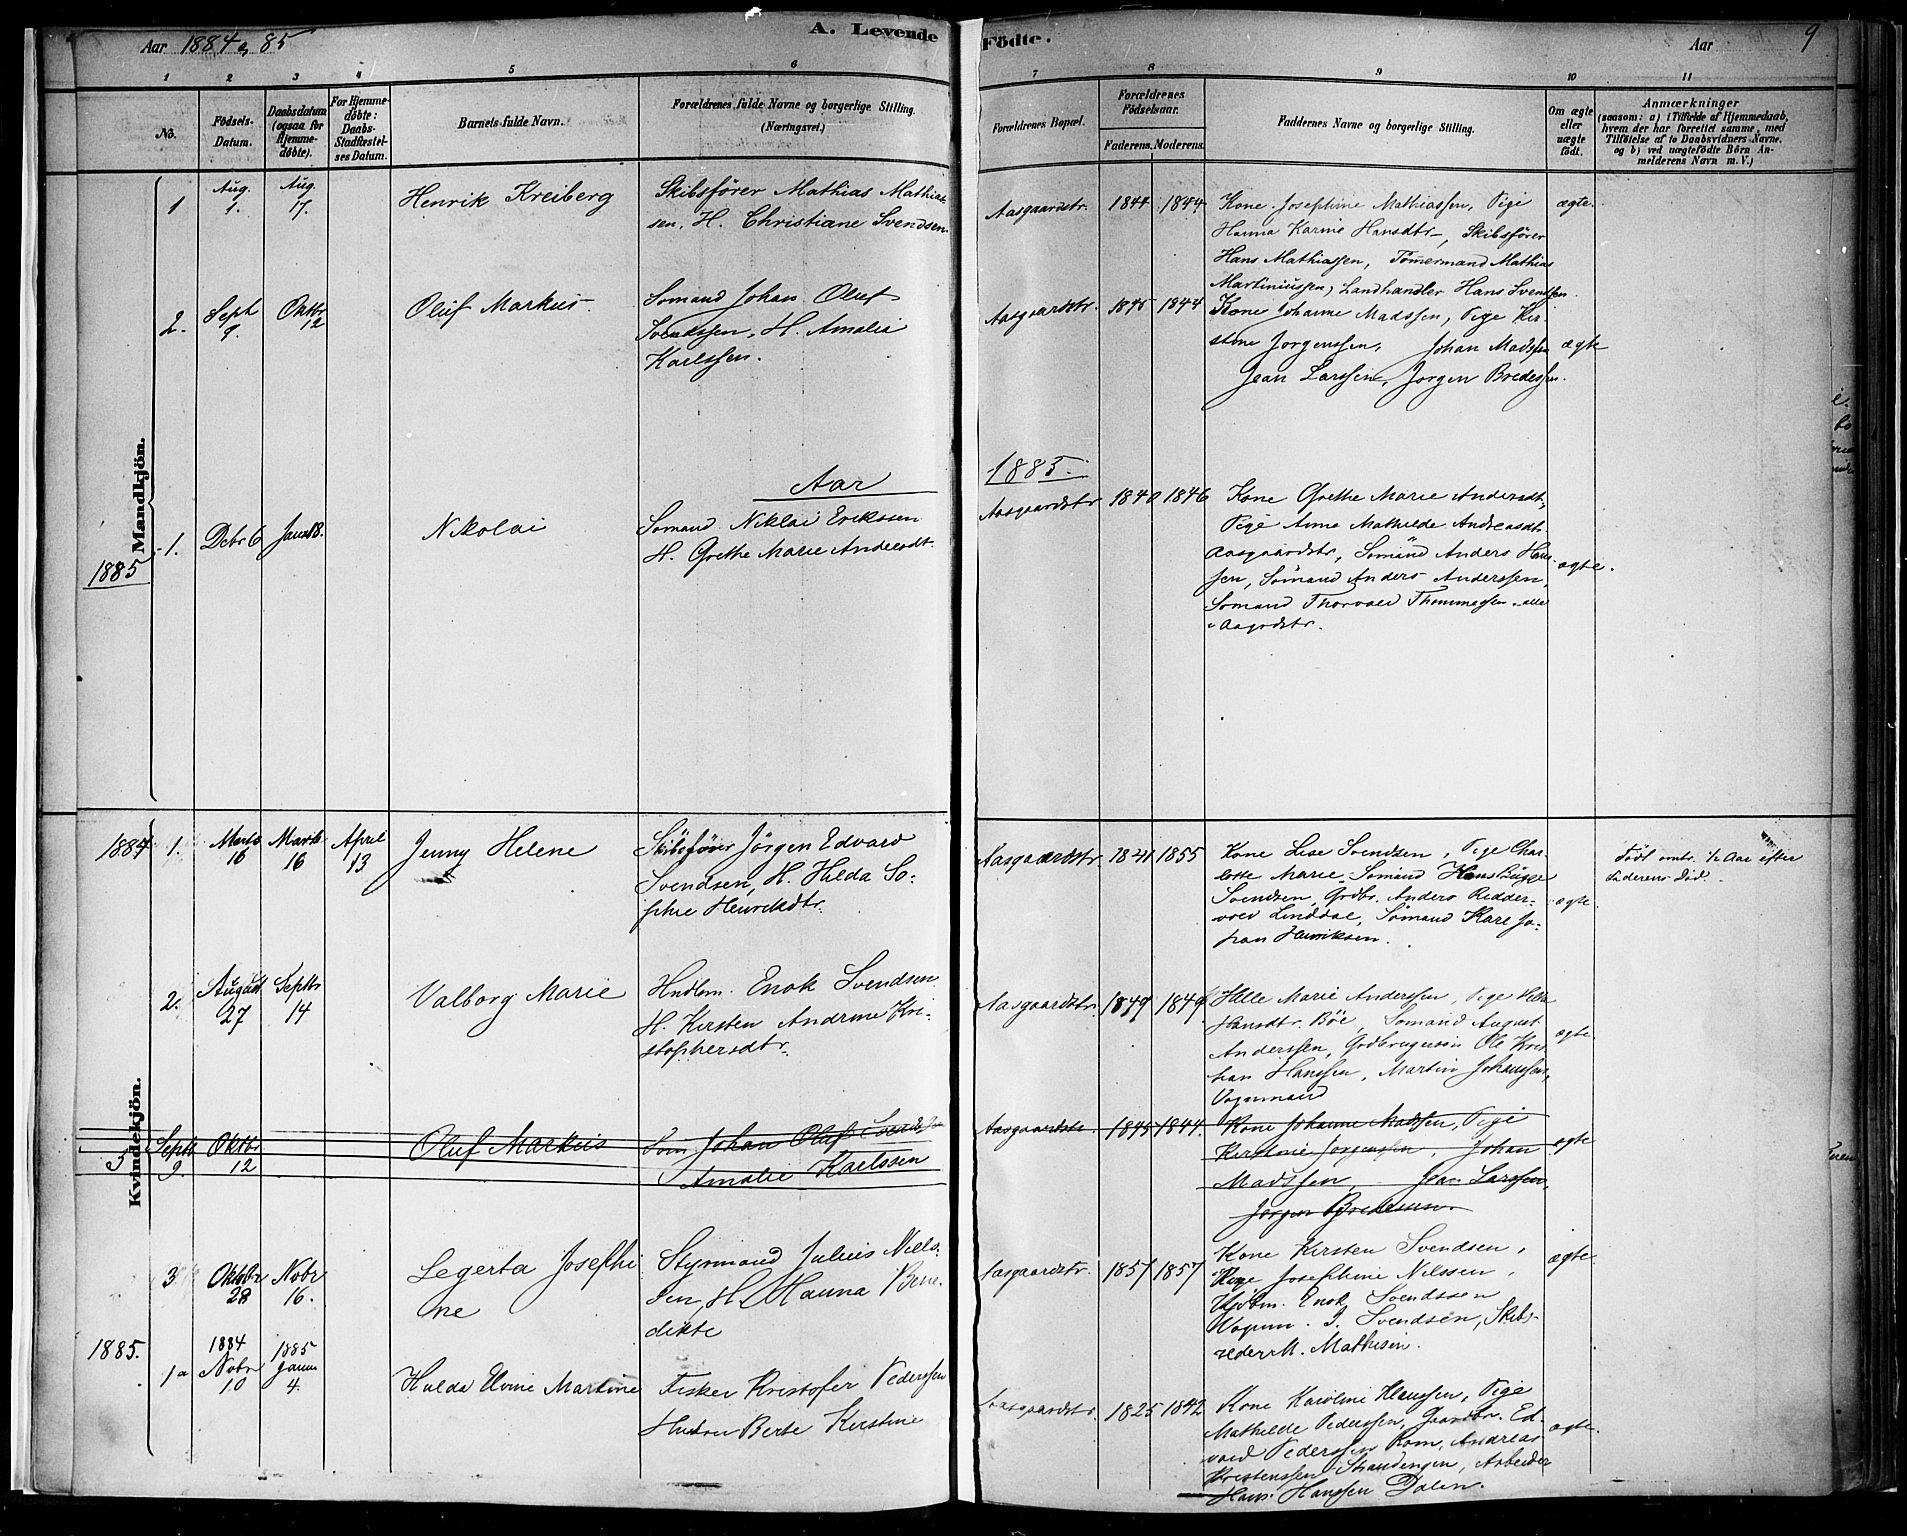 Aar 1884 og 85
A. Levende
Födte.
Aar
9
1 2 3 4 5 6
7 8 9 10 11
No.
Födsels-
Datum.
Daabsdatum
(ogsaa for
Hjemme-
døbte).
For Hjemme-
døbte:
Daabs-
Stadfæstel-
ses Datum.
Barnets fulde Navn.
Forældrenes fulde Navne og borgerlige Stilling.
(Næringsvei.)
Forældrenes Bopæl.
Forældrenes
Födselsaar.
Faderens. Moderens.
Faddernes Navne og borgerlige Stilling.
Om ægte
eller
uægte
födt.
Anmærkninger
(saasom: a) i Tilfælde af Hjemmedaab,
hvem der har forrettet samme, med
Tilföielse af to Daabsvidners Navne.
og b) ved uægtefödte Börn An-
melderens Navn m. V.)
Mandkjön.
1
Aug.
1.
Aug.
17.
Henrik Kreiberg
Skibsfører Mathias Mathias-
sen, H. Christiane Svendsen.
Aasgaardstr.
1844
1844
Kone Josephine Mathiassen, Pige
Hanna Karine Hansdtr, Skibsfører
Hans Mathiassen, Tömmermand Mathias
Martiniussen, Landhandler Hans Svendsen.
ægte.
2.
Sept
9.
Oktbr
12
Oluf Markus
Somand Johan Oluf
Svendssen, H. Amalia
Karlssen.
Aasgaardstr.
1845
1844
Kone Johanne Madssen, Pige Kir-
stine Jorgenssen, Johan Madssen
Jean Larssen, Jorgen Bredessen.
ægte
Aar
1885.
1885
1.
Decbr 6
Janr 18.
Nikolai
Somand Niklai Erikssen
H. Grethe Marie Andersdt.
Aasgaardstr
1840
1846
Kone Grethe Marie Andersdt,
Pige Anne Mathilde Andreasdt.
Aasgaardstr, Somand Anders Hans-
sen, Sömand Anders Anderssen,
Somand Thorvald Thommessen alle
i Aagrdstr.
ægte.
Kvindekjön.
1884
1.
Marts
16
Marts
16
April
13
Jenny Helene
Skibsfører Jörgen Edvard
Svendsen, H. Hilda So-
phie Henrikdtr.
Aasgaardstr
1841
1855
Kone Lise Svendsen, Pige Char-
lotte Marie, Sömand Hans Bügge
Svendsen, Grdbr. Anders Redder-
vold Linddal, Sömand Karl Jo-
han Henriksen.
ægte
Födt omtr. 1/2 Aar efter
Faderens Död.
2.
August
27
Septbr
14
Valborg Marie
Hndlsm. Enok Svendsen
H. Kirsten Andrine Kri-
stophersdtr.
Aasgaardstr.
1849
1849
Helle Marie Anderssen, Pige
Hansdtr. Böe, Somand August
Anderssen, Grdbrugersön Ole Kris-
tian Hanssen, Martin Johanssen,
Vognmand
ægte
3
Septb
9.
Oktbr
12
Oluf Markus
Som Johan Oluf Svendssen
Amalie Karlssen
Aasgaardstr.
1845
1844.
Kone Johanne Madssen, Pige
Kirstine Jorgenssen, Johan
Madssen, Jean Larssen,
Jorgen Bredesen.
ægte
3
Oktbr
28
Novbr
16.
Segerta Josephi
ne
Styrmand Julius Niels-
sen, H. Hanna Bene
dikte
Aasgaardstr.
1857
1857
Kone Kirsten Svendsen,
Pige Josephine Nilssen,
Kjöbm. Enok Svendssen
Vognm. J. Svendsen, Skibs-
reder M. Mathisen.
ægte
1885.
1a
1884
Novbr
10
1885
Januar
4.
Hulda Elvine Martine
Fisker Kristofer Pederssen
Hustru Berte Kirstine
Aasgaardstr.
1825
1842
Kone Karoline Hanssen, Pige
Mathilde Pederssen, Gaardbr. Ed-
vard Pederssen Rom, Andreas
Kristenssen Strandengen, Arbeider
Hans Hanssen Dalen.
ægte.